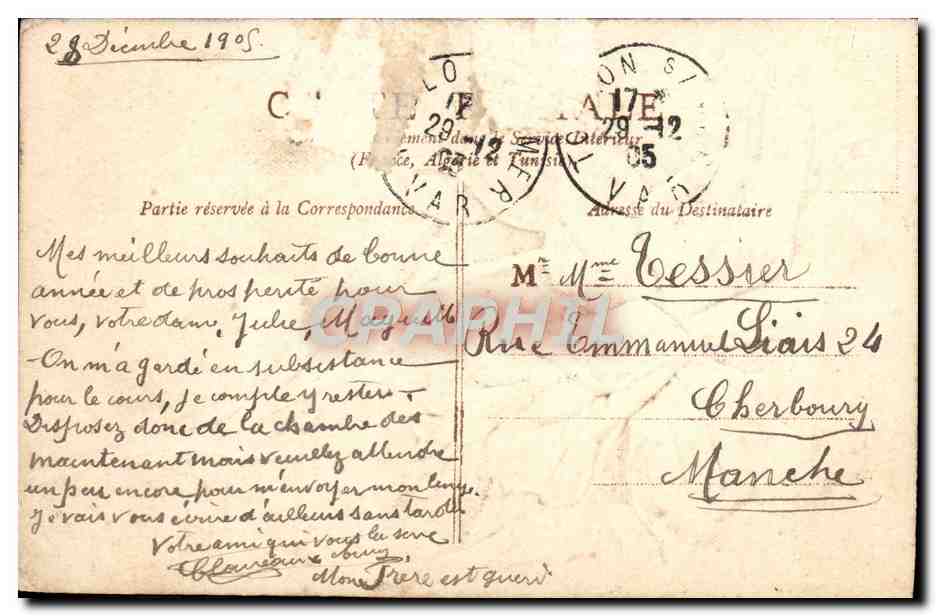 28 Décembre 1905.
CARTE POSTALE
ement dans le Service Intérieur
(France, Algérie et Tunisie)
LO
17
29 - 12
05
VAR
MER
TOULON S/ MER
17
29 - 12
05
VAR
Partie réservée à la Correspondance
Mes meilleurs souhaits de bonne
année et de prosperité pour
vous, votre dame, Julie,
On m'a gardé en subsistance
pour le cours, je compte y rester.
Disposez donc de la chambre dès
maintenant mais veuillez attendre
un peu encore pour m'envoyer mon linge.
Je vais vous écrire d'ailleurs sans tarder
Votre ami qui vous la serre
Mon Frère est guéri
Adresse du Destinataire
Mr Mme Tessier
Rue Emmanuel Liais 24
Cherbourg
Manche
CPAPHIL